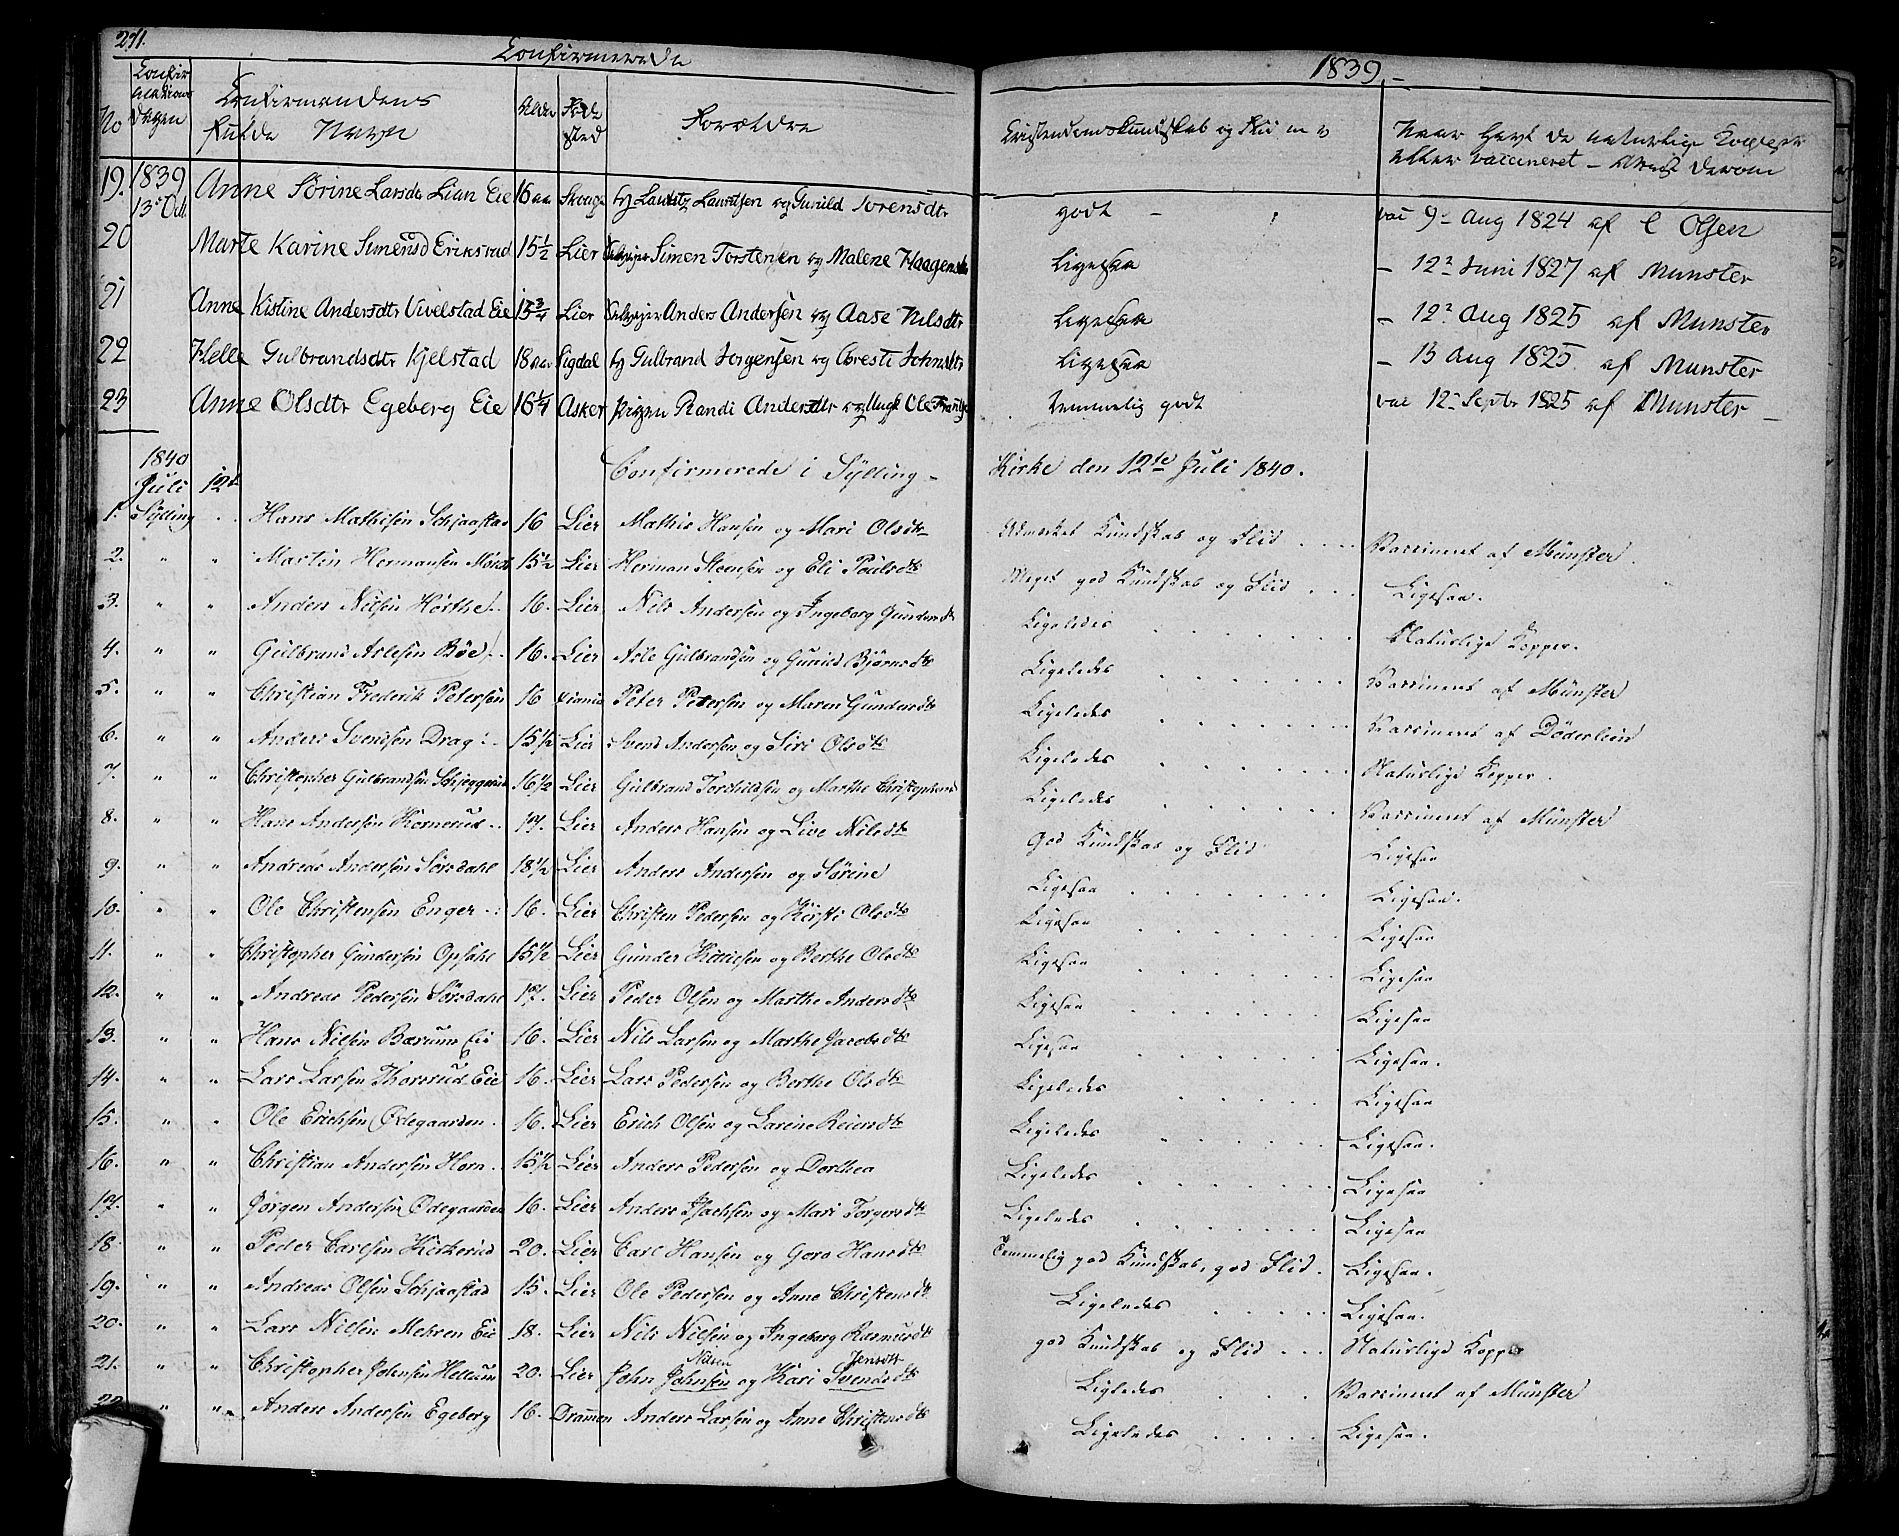 271.
Confirmerede
1839.-
No Confirmations Dagen Confirmandens fulde Navn Alder Føde sted Forældre Christendomskundskab og Flid m v Naar havt de naturlige Kopper eller vaccineret - Attest derom
19. 1839 13e Oct. Anne Sörine Larsdr Lian Eie 16 aar Skoug og Lauritz Lauritsen og Gunild Sorensdtr godt - vac 9- Aug 1824 af C Olsen
20 Marte Karine Simensd Eriksrud 15 1/2 Lier Selveier Simen Torstensen og Malene Haagensdtr ligesaa - 12te Juni 1827 af Munster
21 Anne Kistine Andersdtr Vivelstad Eie 15 3/4 Lier Selveier Anders Andersen og Aase Nilsdtr ligesaa - 12te Aug 1825 af Munster
22 Helle Gulbrandsdtr Kjelstad 18 aar Sigdal Gulbrand Jorgensen og Goresti Johnsdtr ligesaa - 13 Aug 1825. af Munster
23 Anne Olsdtr Egeberg Eie 16 1/4 Asker pigen Randi Andersdtr og Ungk Ole temmelig godt vac 12- Septbr 1825 af Munster -
1840 Juli 12te Confirmerede i Sylling - Kirke den 12te Juli 1840.
1. Sylling . . Hans Mathisen Schjaastad 16 Lier Mathis Hansen og Mari Olsdtr Udmerket Kundskab og Flid . . . . Vaccineret af Münster.
2. " " Martin Hermansen Mørch 15 1/2 Lier Herman Steensen og Eli Poulsdtr Meget god Kundskab og Flid . . . Ligesaa.
3. " " Anders Nilsen Hørthe 16. Lier Nils Andersen og Ingeborg Gundersdtr Ligeledes . . . . . . Naturlige Kopper.
4. " " Gulbrand Aslesen Bøe 16. Lier Asle Gulbrandsen og Gunild Bjørnsdtr Ligeledes . . . . . . Vaccineret af Münster
5. " " Christian Frederik Petersen 16 Xiania Peter Petersen og Maren Gundersdtr Ligeledes . . . . . . Vaccineret af Döderlein
6. " " Anders Svendsen Drag 15 1/2 Lier Svend Andersen og Siri Olsdtr Ligeledes . . . . . . Naturlige Kopper.
7. " " Christopher Gulbrandsen Schjeggerud 16 1/2 Lier Gulbrand Torchildsen og Marthe Christophersd Ligeledes . . . . . . Vaccineret af Münster
8. " " Hans Andersen Hornerud 17. Lier Anders Hansen og Live Nilsdtr God Kundskab og Flid Ligesaa
9. " " Andreas Andersen Sørsdahl 18 1/2 Lier Anders Andersen og Sørine Ligesaa . . . . . . Ligesaa.
10. " " Ole Christensen Enger 16. Lier Christen Pedersen og Kirsti Olsdtr Ligesaa . . . . . . Ligesaa
11. " " Christopher Gundersen Opsahl 15 1/2 Lier Gunder Knudsen og Berthe Olsdtr Ligesaa . . . . . . Ligesaa
12. " " Andreas Pedersen Sørsdahl 17. Lier Peder Olsen og Marthe Andersdtr Ligesaa . . . . . . Ligesaa
13. " " Hans Nilsen Bærum Eie 16. Lier Nils Larsen og Marthe Jacobsdtr Ligesaa . . . . . . Ligesaa.
14. " " Lars Larsen Thorsrud Eie 16. Lier Lars Pedersen og Berthe Olsdtr Ligeledes . . . . . . Ligesaa
15. " " Ole Erichsen Ødegaarden. 16. Lier Erich Olsen og Larine Reiersdtr Ligeledes . . . . . . Ligesaa.
16. " " Christian Andersen Horn. 15 1/2 Lier Anders Pedersen og Dorthea Ligeledes . . . . . . Ligesaa
17. " " Jørgen Andersen Ødegaarden 16. Lier Anders Isachsen og Mari Torgersdtr Ligeledes . . . . . . Ligesaa
18. " " Peder Carlsen Kirkerud 20. Lier Carl Hansen og Goro Hansdtr Temmelig god Kundskab, god Flid. Ligesaa.
19. " " Andreas Olsen Schjaastad 15. Lier Ole Pedersen og Anne Christensdtr Ligeledes . . . . . Ligesaa.
20. " " Lars Nilsen Mehren Eie 18. Lier Nils Nilsen og Ingeborg Rasmusdtr god Kundskab og Flid . . . Naturlige Kopper
21. " " Christopher Johnsen Hellum 20. Lier John Johnsen Nilsen og Kari Svendsdtr Jensdtr Ligledes . . . Vaccineret af Münster
22. " " Anders Andersen Egeberg 16. Drammen Anders Larsen og Anne Christensdtr Ligeledes . . . . . Ligesaa.